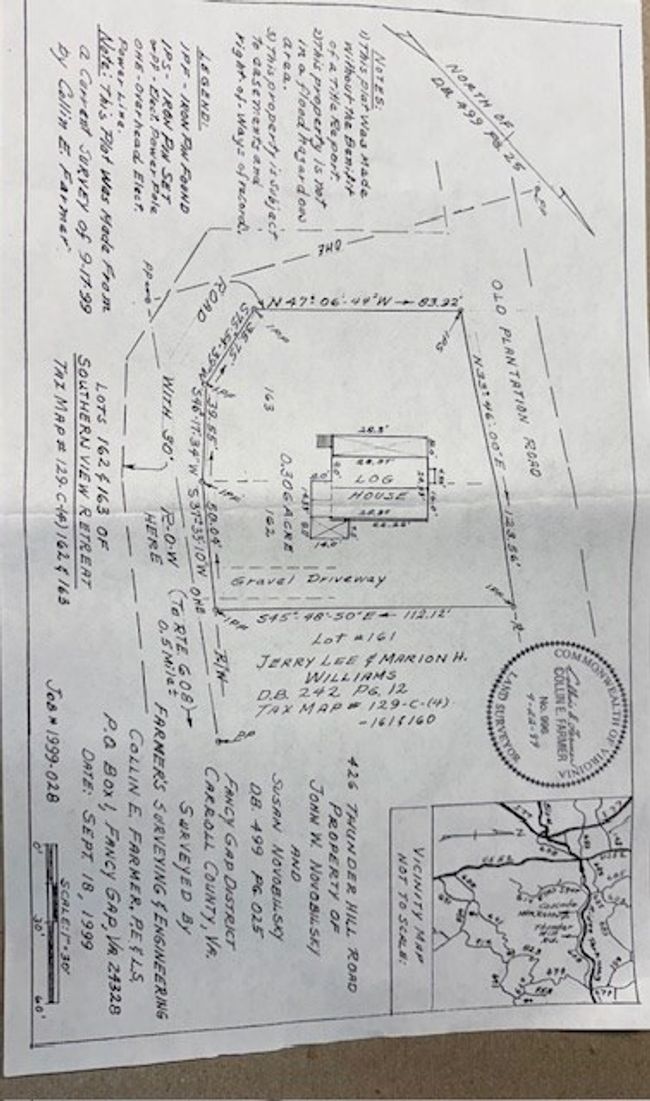 NOTES:
1) This plat was made
without the benifit
of a title report.
2) This property is not
in a flood hazard on
area.
3) This property is subject
to easements and
right-of-ways of record.
LEGEND:
IPF - IRON PIN FOUND
IPS - IRON PIN SET
PP - Elect. Power Pole
OHE - Overhead Elect.
Power Line.
Note: This Plat Was Made From
a Current Survey of 9-17-99
by Collin E. Farmer.
NORTH OF
D.B. 499 PG. 25
PP
OHE
OLD PLANTATION ROAD
N 47°-06'-49"W 83.92'
IPS
N33°-46'-00"E 123.56'
IPF
S45°-48'-50"E 112.12'
IPF
S37°-35'-10"W 50.09'
IPF
S46°-17'-34"W 39.55'
IPF
36.75'
IPF
ROAD
WITH 30'
R-O-W
HERE
(TO RTE 608)
0.5 Mile±
OHE
R/W
PP
163
162
0.306 ACRE
LOG
HOUSE
Gravel Driveway
Lot #161
JERRY LEE & MARION H.
WILLIAMS
D.B. 242 PG. 12
TAX MAP # 129-C-(4)
-161 & 160
LOTS 162 & 163 OF
SOUTHERN VIEW RETREAT
TAX MAP # 129-C-(4) 162 & 163
COMMONWEALTH OF VIRGINIA
Collin E. Farmer
COLLIN E. FARMER
No. 996
LAND SURVEYOR
VICINITY MAP
NOT TO SCALE:
426 THUNDER HILL ROAD
PROPERTY OF
JOHN W. NOVOBILSKY
AND
SUSAN NOVOBILSKY
DB 499 PG 025
FANCY GAP DISTRICT
CARROLL COUNTY, VA.
SURVEYED BY
FARMER'S SURVEYING & ENGINEERING
COLLIN E. FARMER, P.E. & L.S.
P.O. BOX 1, FANCY GAP, VA 24328
DATE: SEPT. 18, 1999
JOB # 1999-028
SCALE: 1"=30'
0' 30' 60'